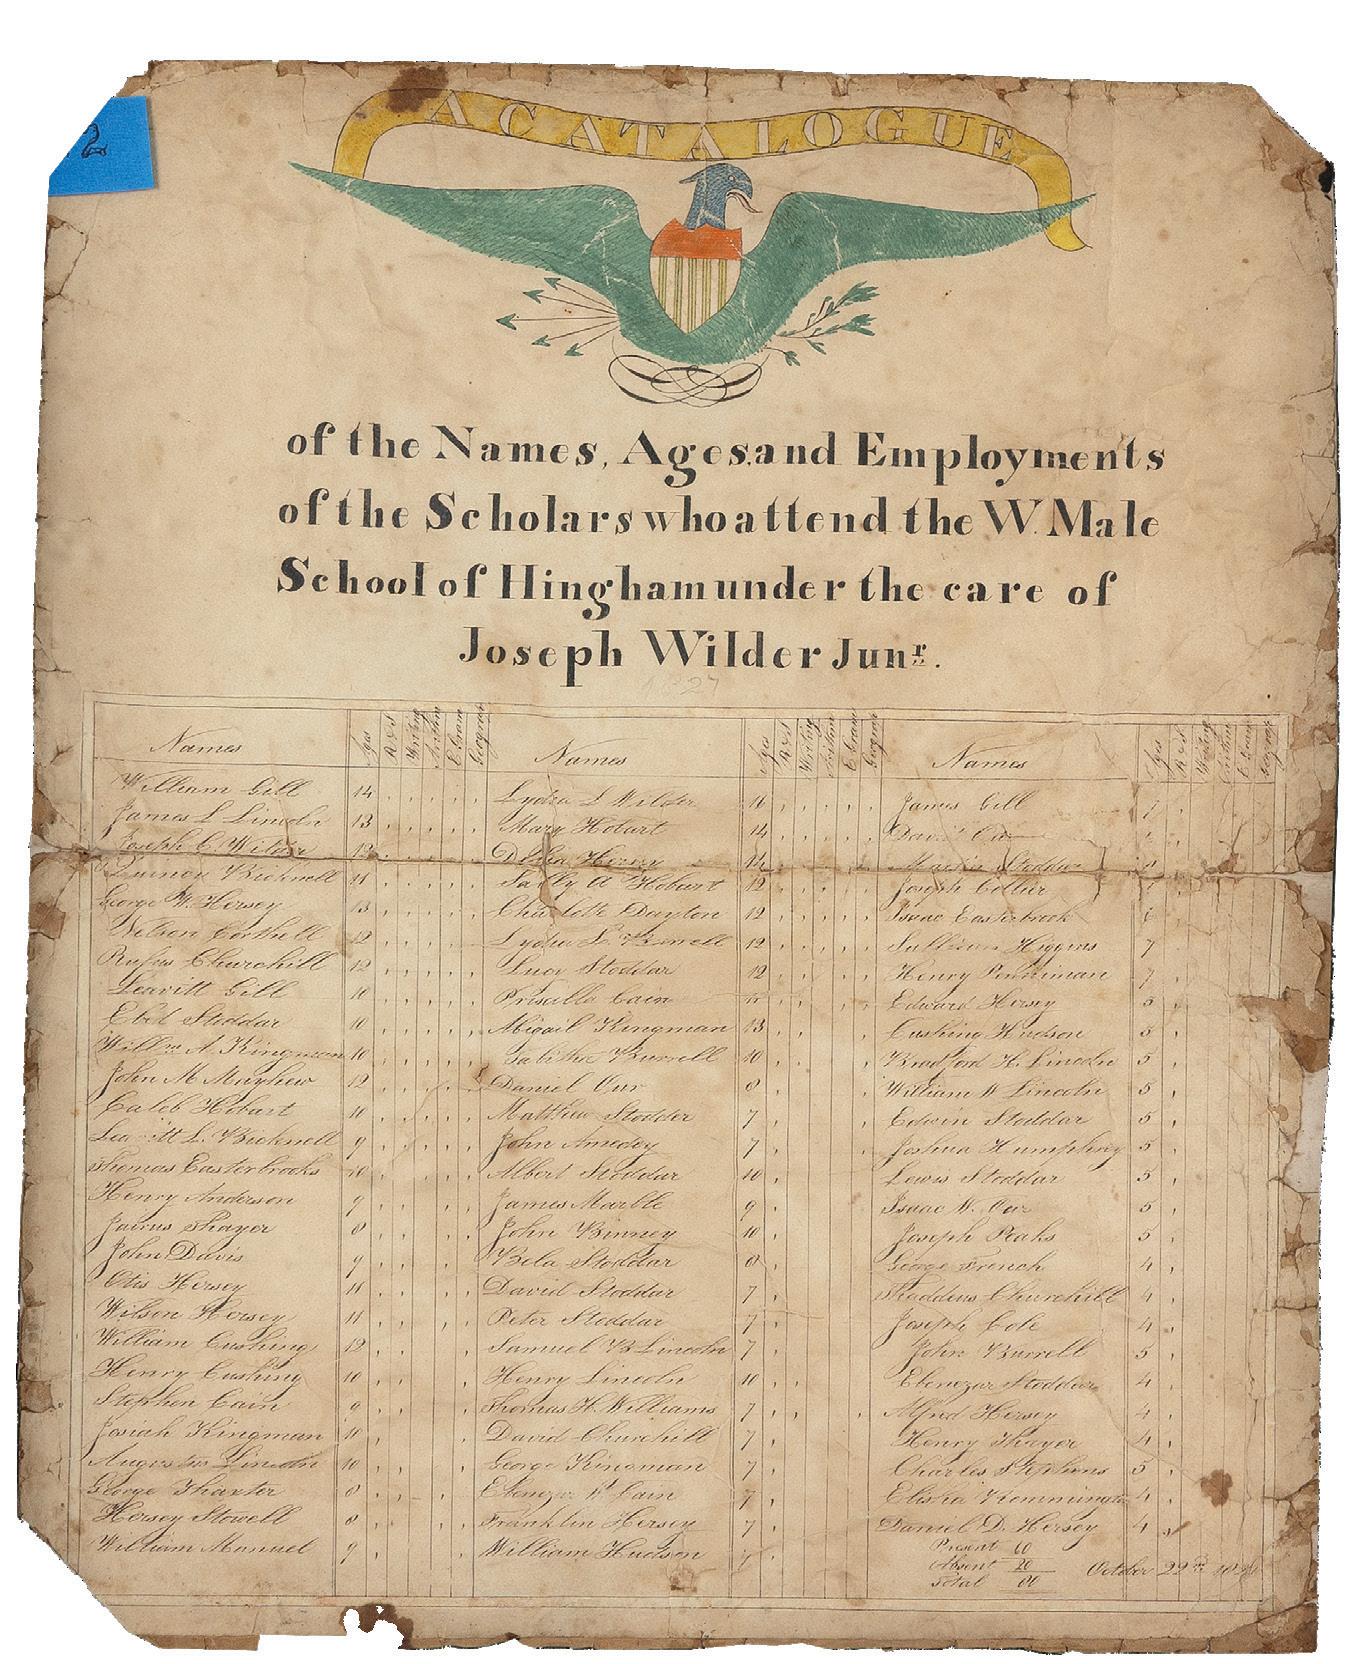 2
A CATALOGUE
of the Names, Ages, and Employments
of the Scholars who attend the W. Male
School of Hingham under the care of
Joseph Wilder Junr.
1827
Names Ages R&S Writing Arithm E. Gram Geograp Names Ages R&S Writing Arithm E. Gram Geograp Names Ages R&S Writing E. Gram Geograp
William Gill 14 Lydia L Wilder 16 James Gill 7
James L Lincoln 13 Mary Hobart 14 David
Joseph C Wilder 12 Hersey 14 Martin Stoddar
Bicknell 11 Sally A Hobart 12 Joseph Collier
George W. Hersey 13 Charlotte Dayton 12 Isaac Easterbrook
Nelson Corthell 12 Lydia Burrell 12 Sullivan Higgins 7
Rufus Churchill 12 Lucy Stoddar 12 Henry Penniman 7
Leavitt Gill 10 Priscilla Cain Edward Hersey 5
Ebed Stoddar 10 Abigail Kingman 13 Cushing Hudson 5
Willm A. Kingman 10 Talitha Burrell 10 Bradford H. Lincoln 5
John M Mayhew 12 Daniel 8 William W Lincoln 5
Caleb Hobart 10 Matthew Stodder 7 Edwin Stoddar 5
Leavitt L. Bicknell 9 John Amedey 7 Joshua Humphrey 5
Thomas Easterbrooks 10 Albert Stoddar 10 Lewis Stoddar 5
Henry Anderson 9 James Marble 9 Isaac W. 5
James Thayer 8 John Binney 10 Joseph Peaks 5
John Davis 9 Bela Stoddar 8 George French 4
Otis Hersey 11 David Stoddar 7 Thaddeus Churchill 4
Wilson Hersey 11 Peter Stoddar 7 Joseph Cole 4
William Cushing 12 Samuel B Lincoln 7 John Burrell 5
Henry Cushing 10 Henry Lincoln 10 Ebenezar Stoddar 4
Stephen Cain 9 Thomas H. Williams 7 Alfred Hersey 4
Josiah Kingman 11 David Churchill 7 Henry Thayer 4
Augustus Lincoln 10 George Kingman 7 Charles Stephens 5
George Thaxter 8 Cain 7 Elisha Remmington 4
Hersey Stowell 8 Franklin Hersey 7 Daniel D. Hersey 4
William Manuel 9 William Hudson 7 Present 60
Absent 20 October 22nd
Total 80